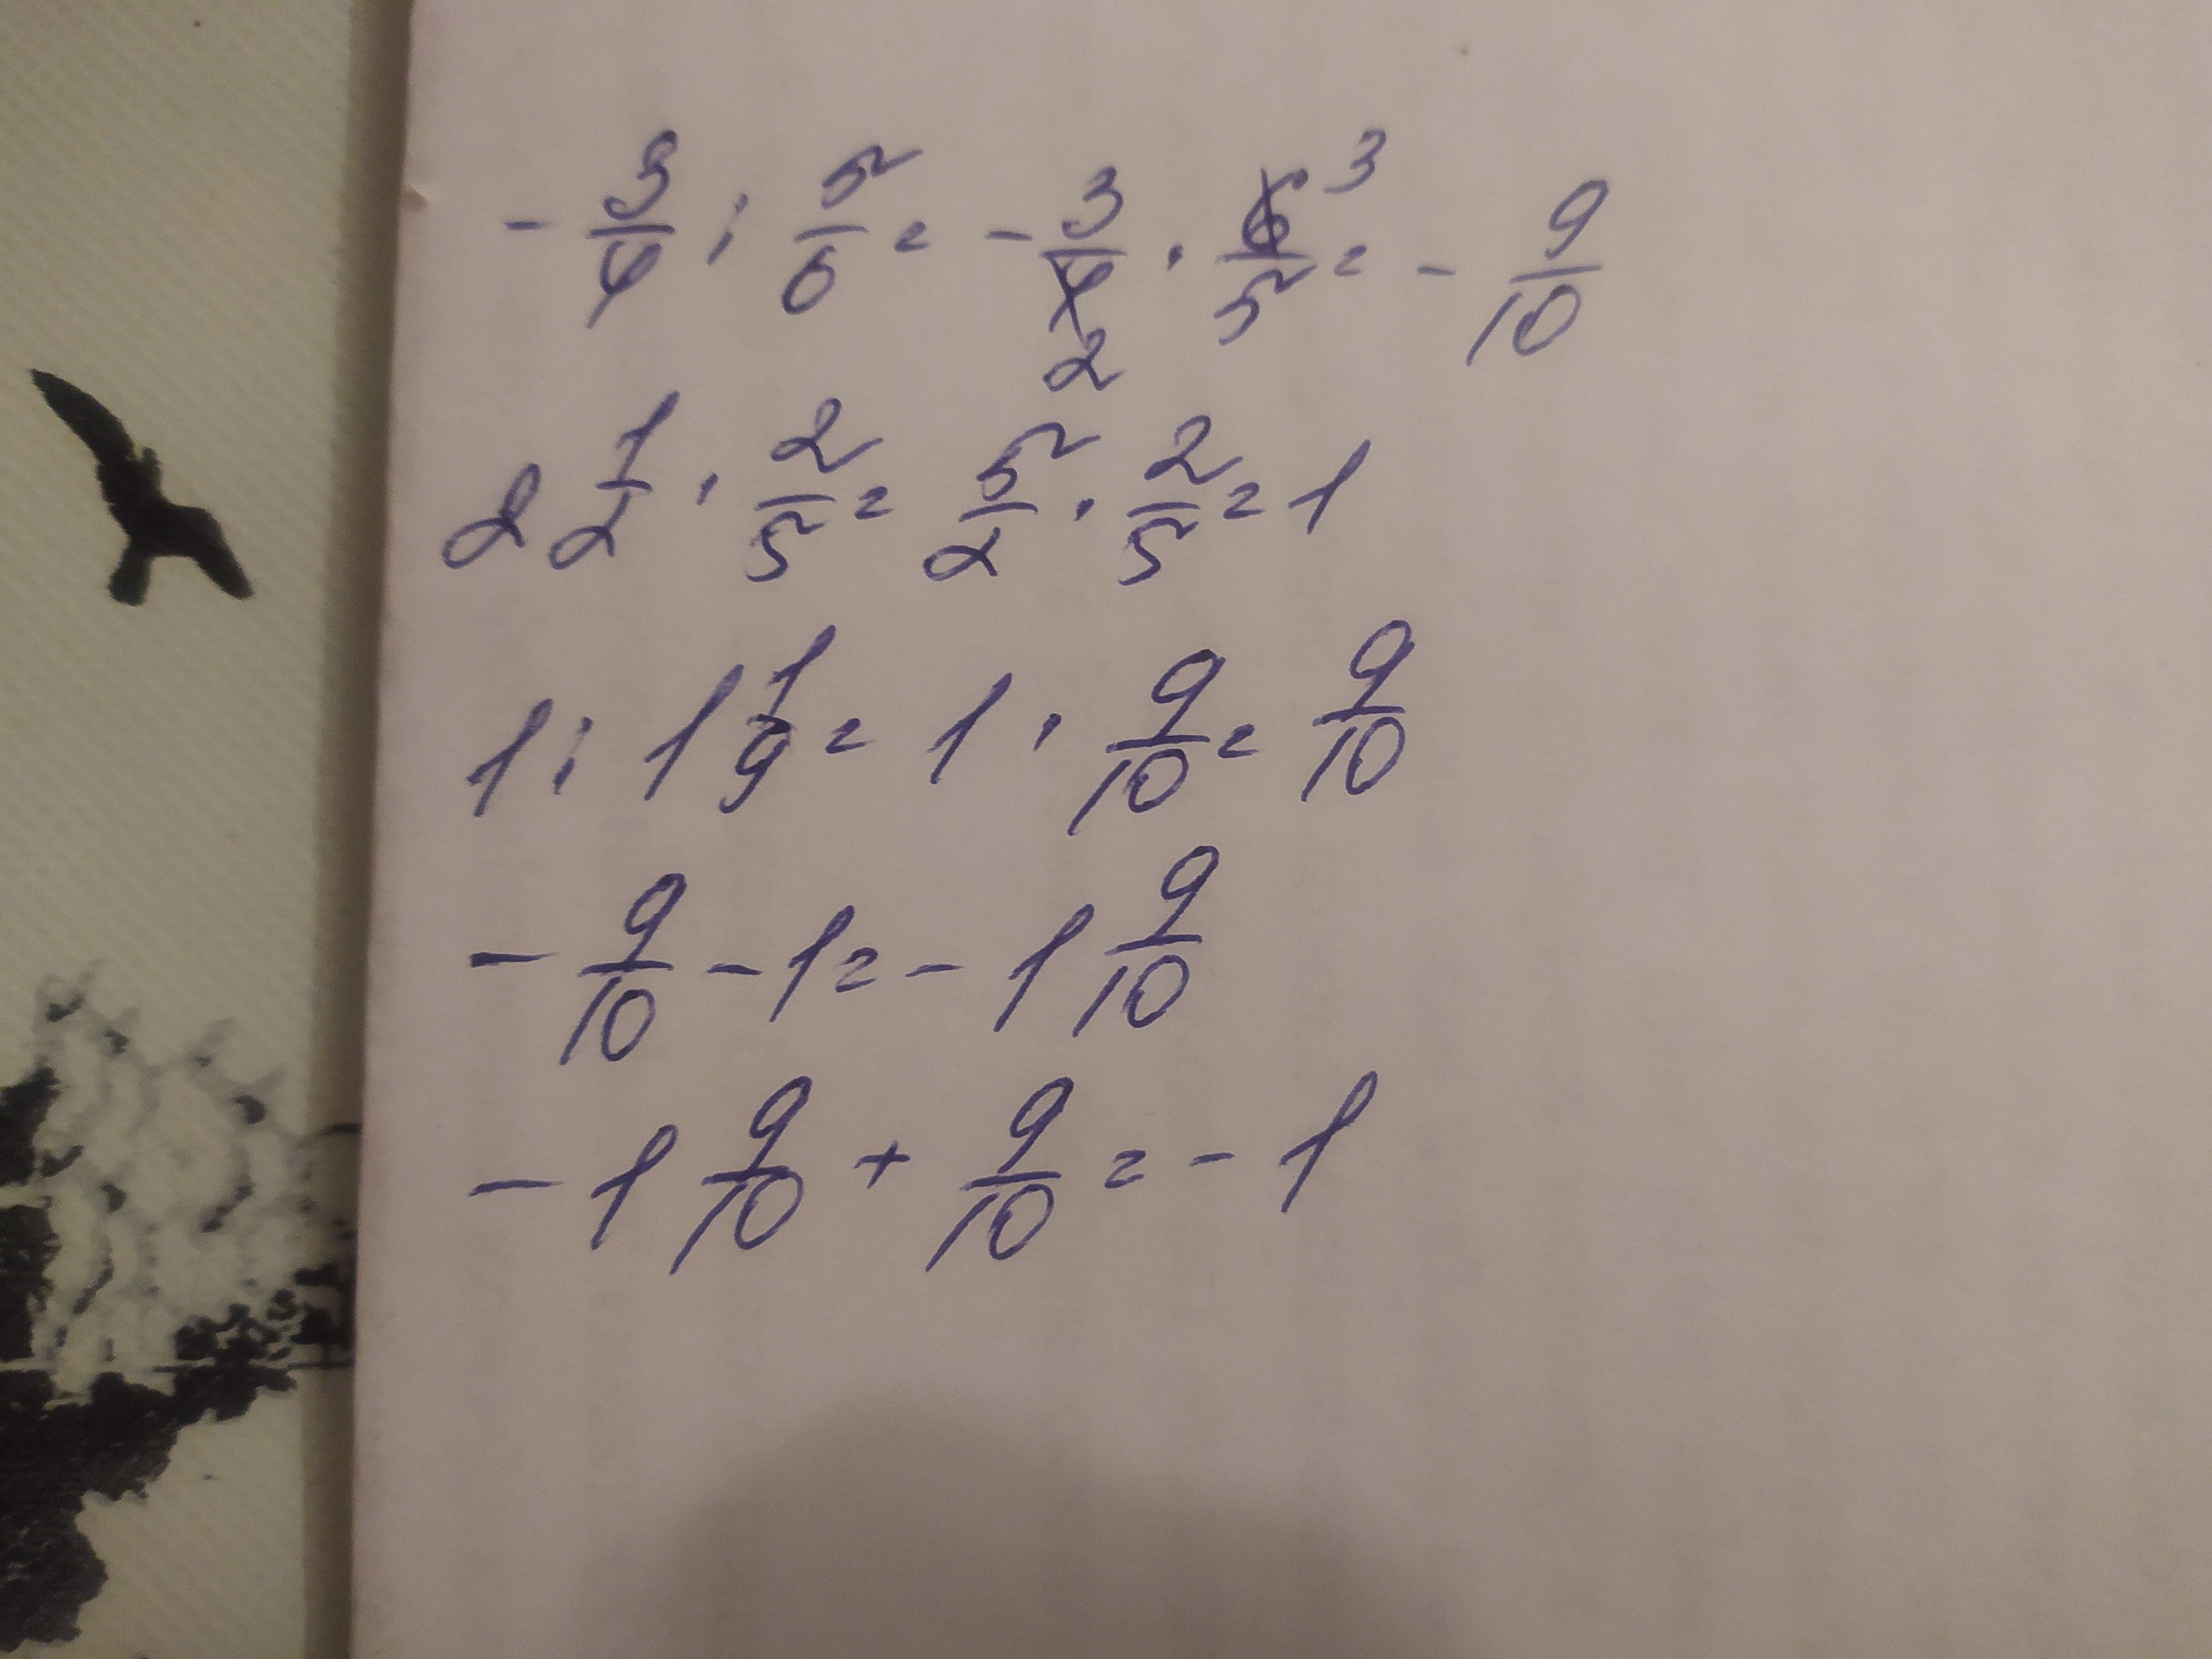 - 3/4 : 5/6 = - 3/4 2 · 6/5 3 = - 9/10
2 1/2 · 2/5 = 5/2 · 2/5 = 1
1 : 1 1/9 = 1 · 9/10 = 9/10
- 9/10 - 1 = - 1 9/10
- 1 9/10 + 9/10 = - 1